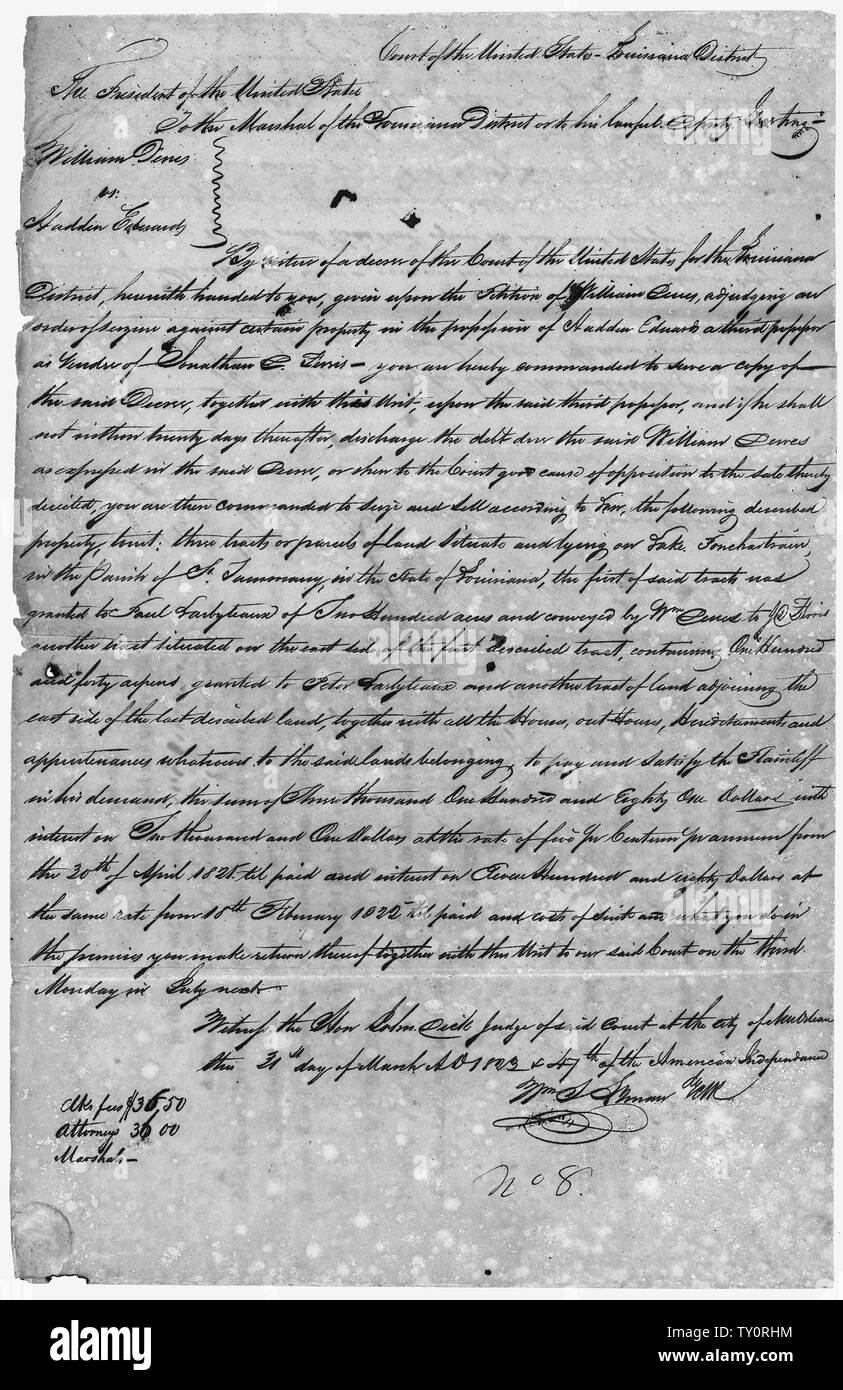 Court of the United States - Louisiana District
The President of the United States
To the Marshal of the Louisiana District or to his lawful Deputy Greeting -
William Dewes
vs.
Haddin Edwards
By virtue of a decree of the Court of the United States for the Louisiana
District, herewith handed to you, given upon the Petition of William Dewes, adjudging an
order of seizure against certain property in the possession of Hadden Edwards a third possessor
as Vendee of Jonathan C. Ferris - you are hereby commanded to serve a copy of
the said Decree, together with this Writ, upon the said third possessor, and if he shall
not within twenty days thereafter, discharge the debt due the said William Dewes
as expressed in the said Decree, or shew to the Court good cause of opposition to the sale thereby
directed, you are then commanded to Seize and Sell according to Law, the following described
property, towit: three tracts or parcels of land Situate and lying on Lake Ponchartrain,
in the Parish of St. Tammany, in the State of Louisiana, the first of said tracts was
granted to Paul Labyteaux of Two Hundred acres and conveyed by Wm Dewes to Ferris
another tract situated on the east side of the first described tract, containing One Hundred
and forty arpens granted to Peter Labyteaux and another tract of land adjoining the
east side of the last described land, together with all the Houses, out Houses, Heredetaments and
appurtenances whatsoever to the said lands belonging, to pay and satisfy the Plaintiff
in his demand, the sum of Three thousand One Hundred and Eighty One Dollars with
interest on Two thousand and One Dollars at the rate of five Pr Centum Pr annum from
the 20th of April 1821 til paid and interest on Eleven Hundred and eighty Dollars at
the same rate from 18th February 1822 til paid and costs of suit and what you do in
the premises you make return thereof together with this Writ to our said Court on the third
Monday in July next
Witness the Hon John Dick Judge of said Court at the city of New Orleans
this 31st day of March AD 1823 & 47th of the American Independence
Wm Clk
Clks fees $36,50
Attorneys 30 00
Marshals -
No 8.
alamy
Image ID: TY0RHM
www.alamy.com